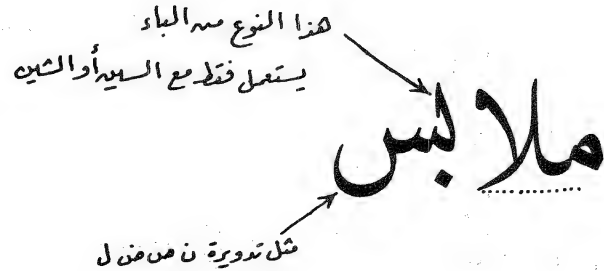 هذا النوع من الباء
يستعمل فقط مع السين أو الشين
ملابس
مثل تدويرة ن ص ض ل